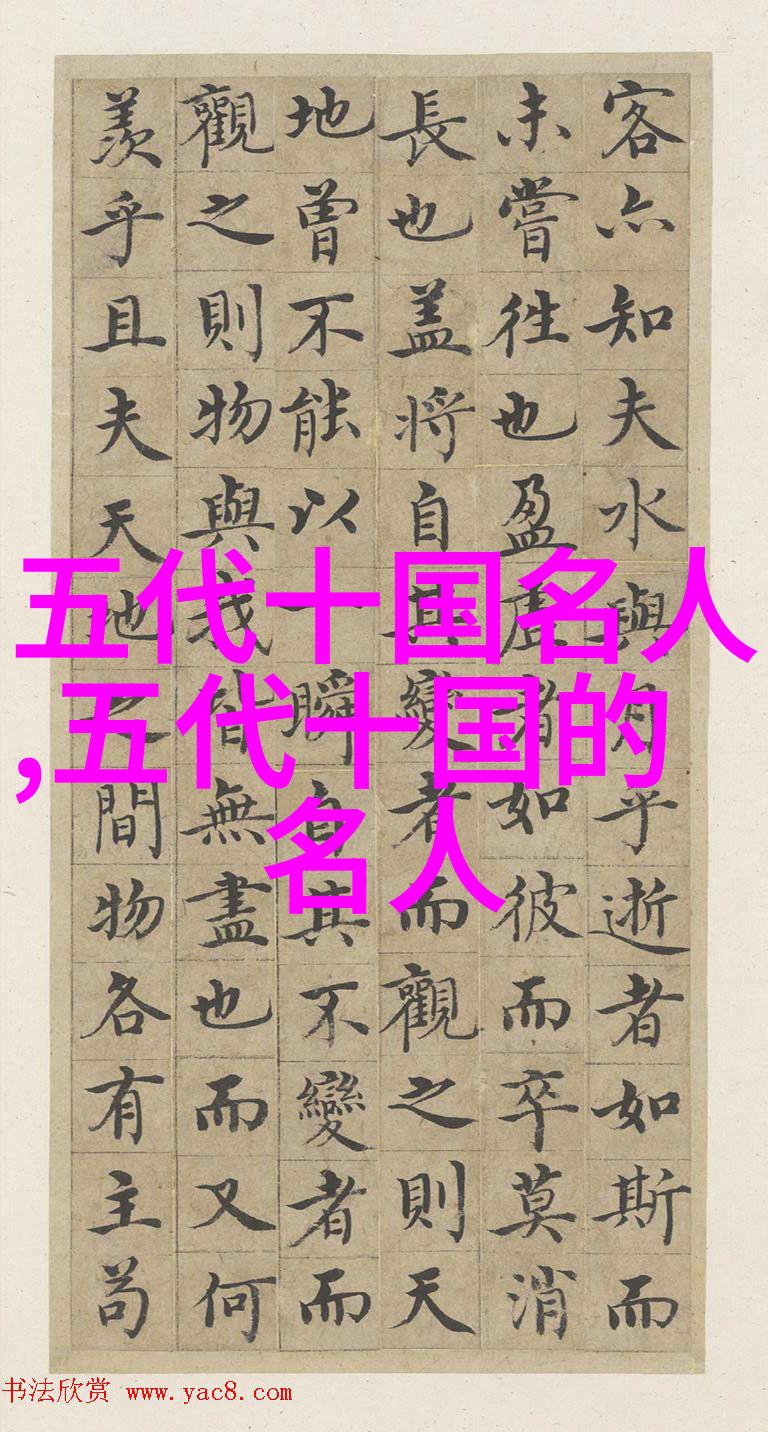 客亦知夫水與月乎逝者如斯而
未嘗往也盈虛者如彼而卒莫消
長也盖將自其變者而觀之則天
地曾不能以一瞬自其不變者而
觀之則物與我皆無盡也而又何
羨乎且夫天地之間物各有主苟
五代十国名人
,五代十国的
名人
书法欣赏 www.yac8.com